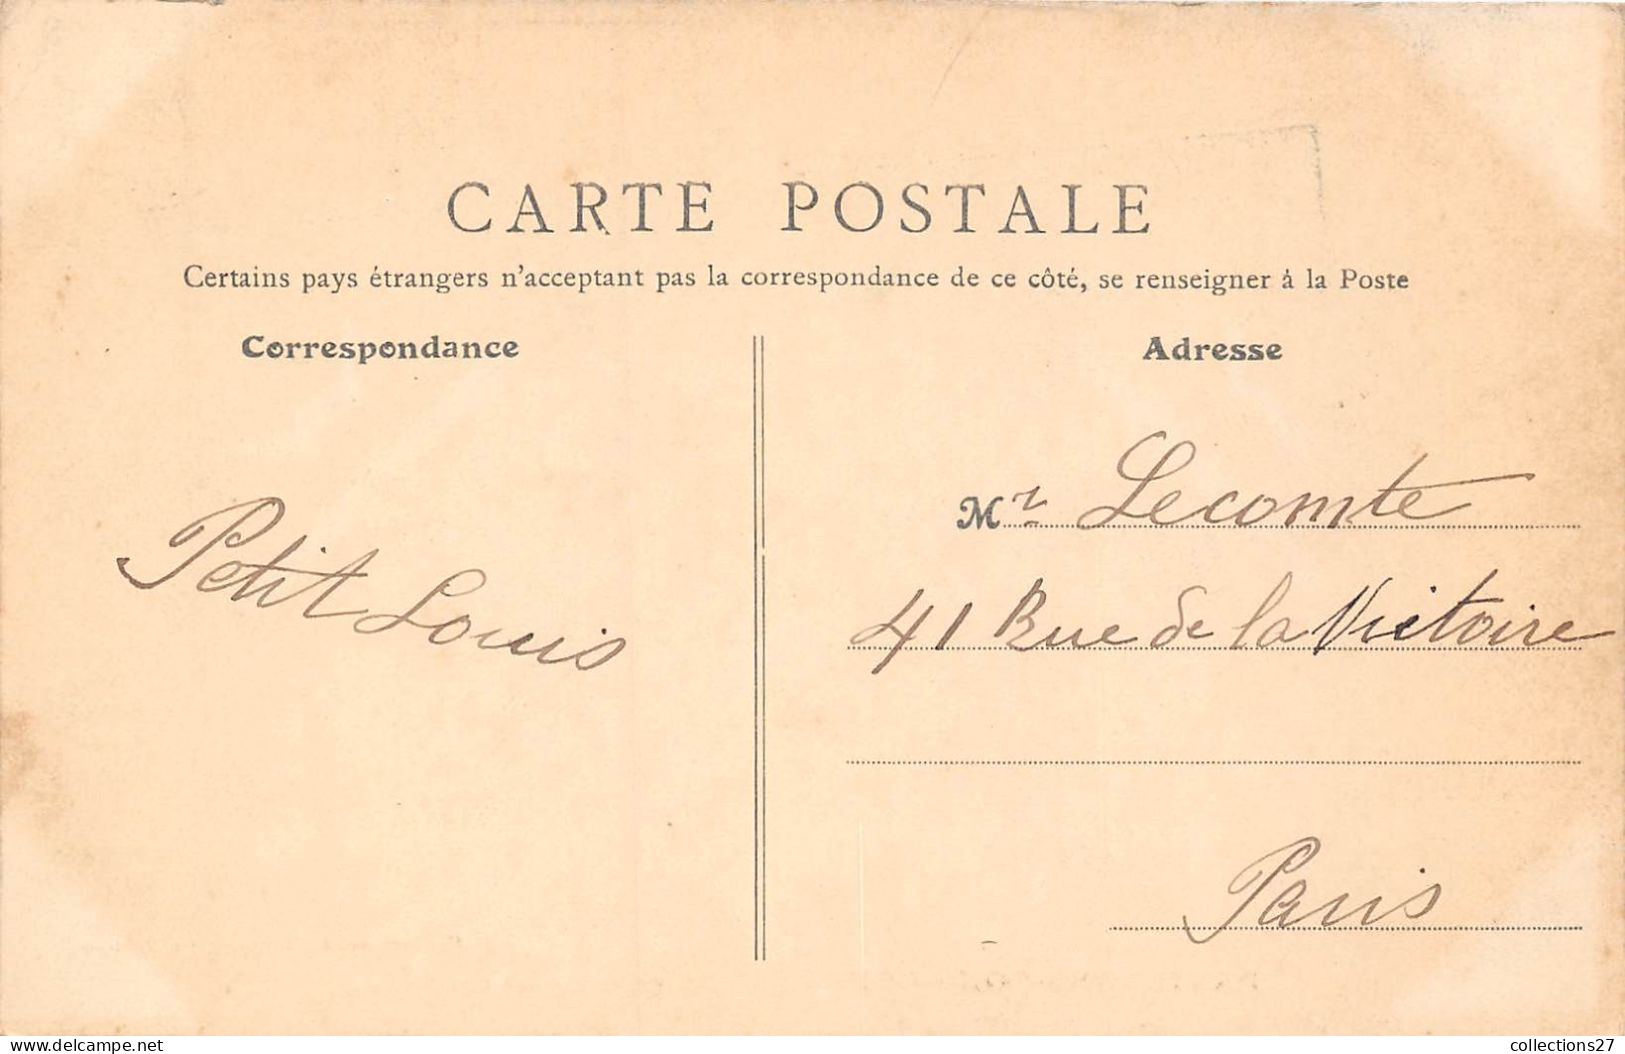 CARTE POSTALE
Certains pays étrangers n'acceptant pas la correspondance de ce côté, se renseigner à la Poste
Correspondance
Adresse
Petit Louis
Mr Lecomte
41 Rue de la Victoire
Paris
delcampe.net
collections27